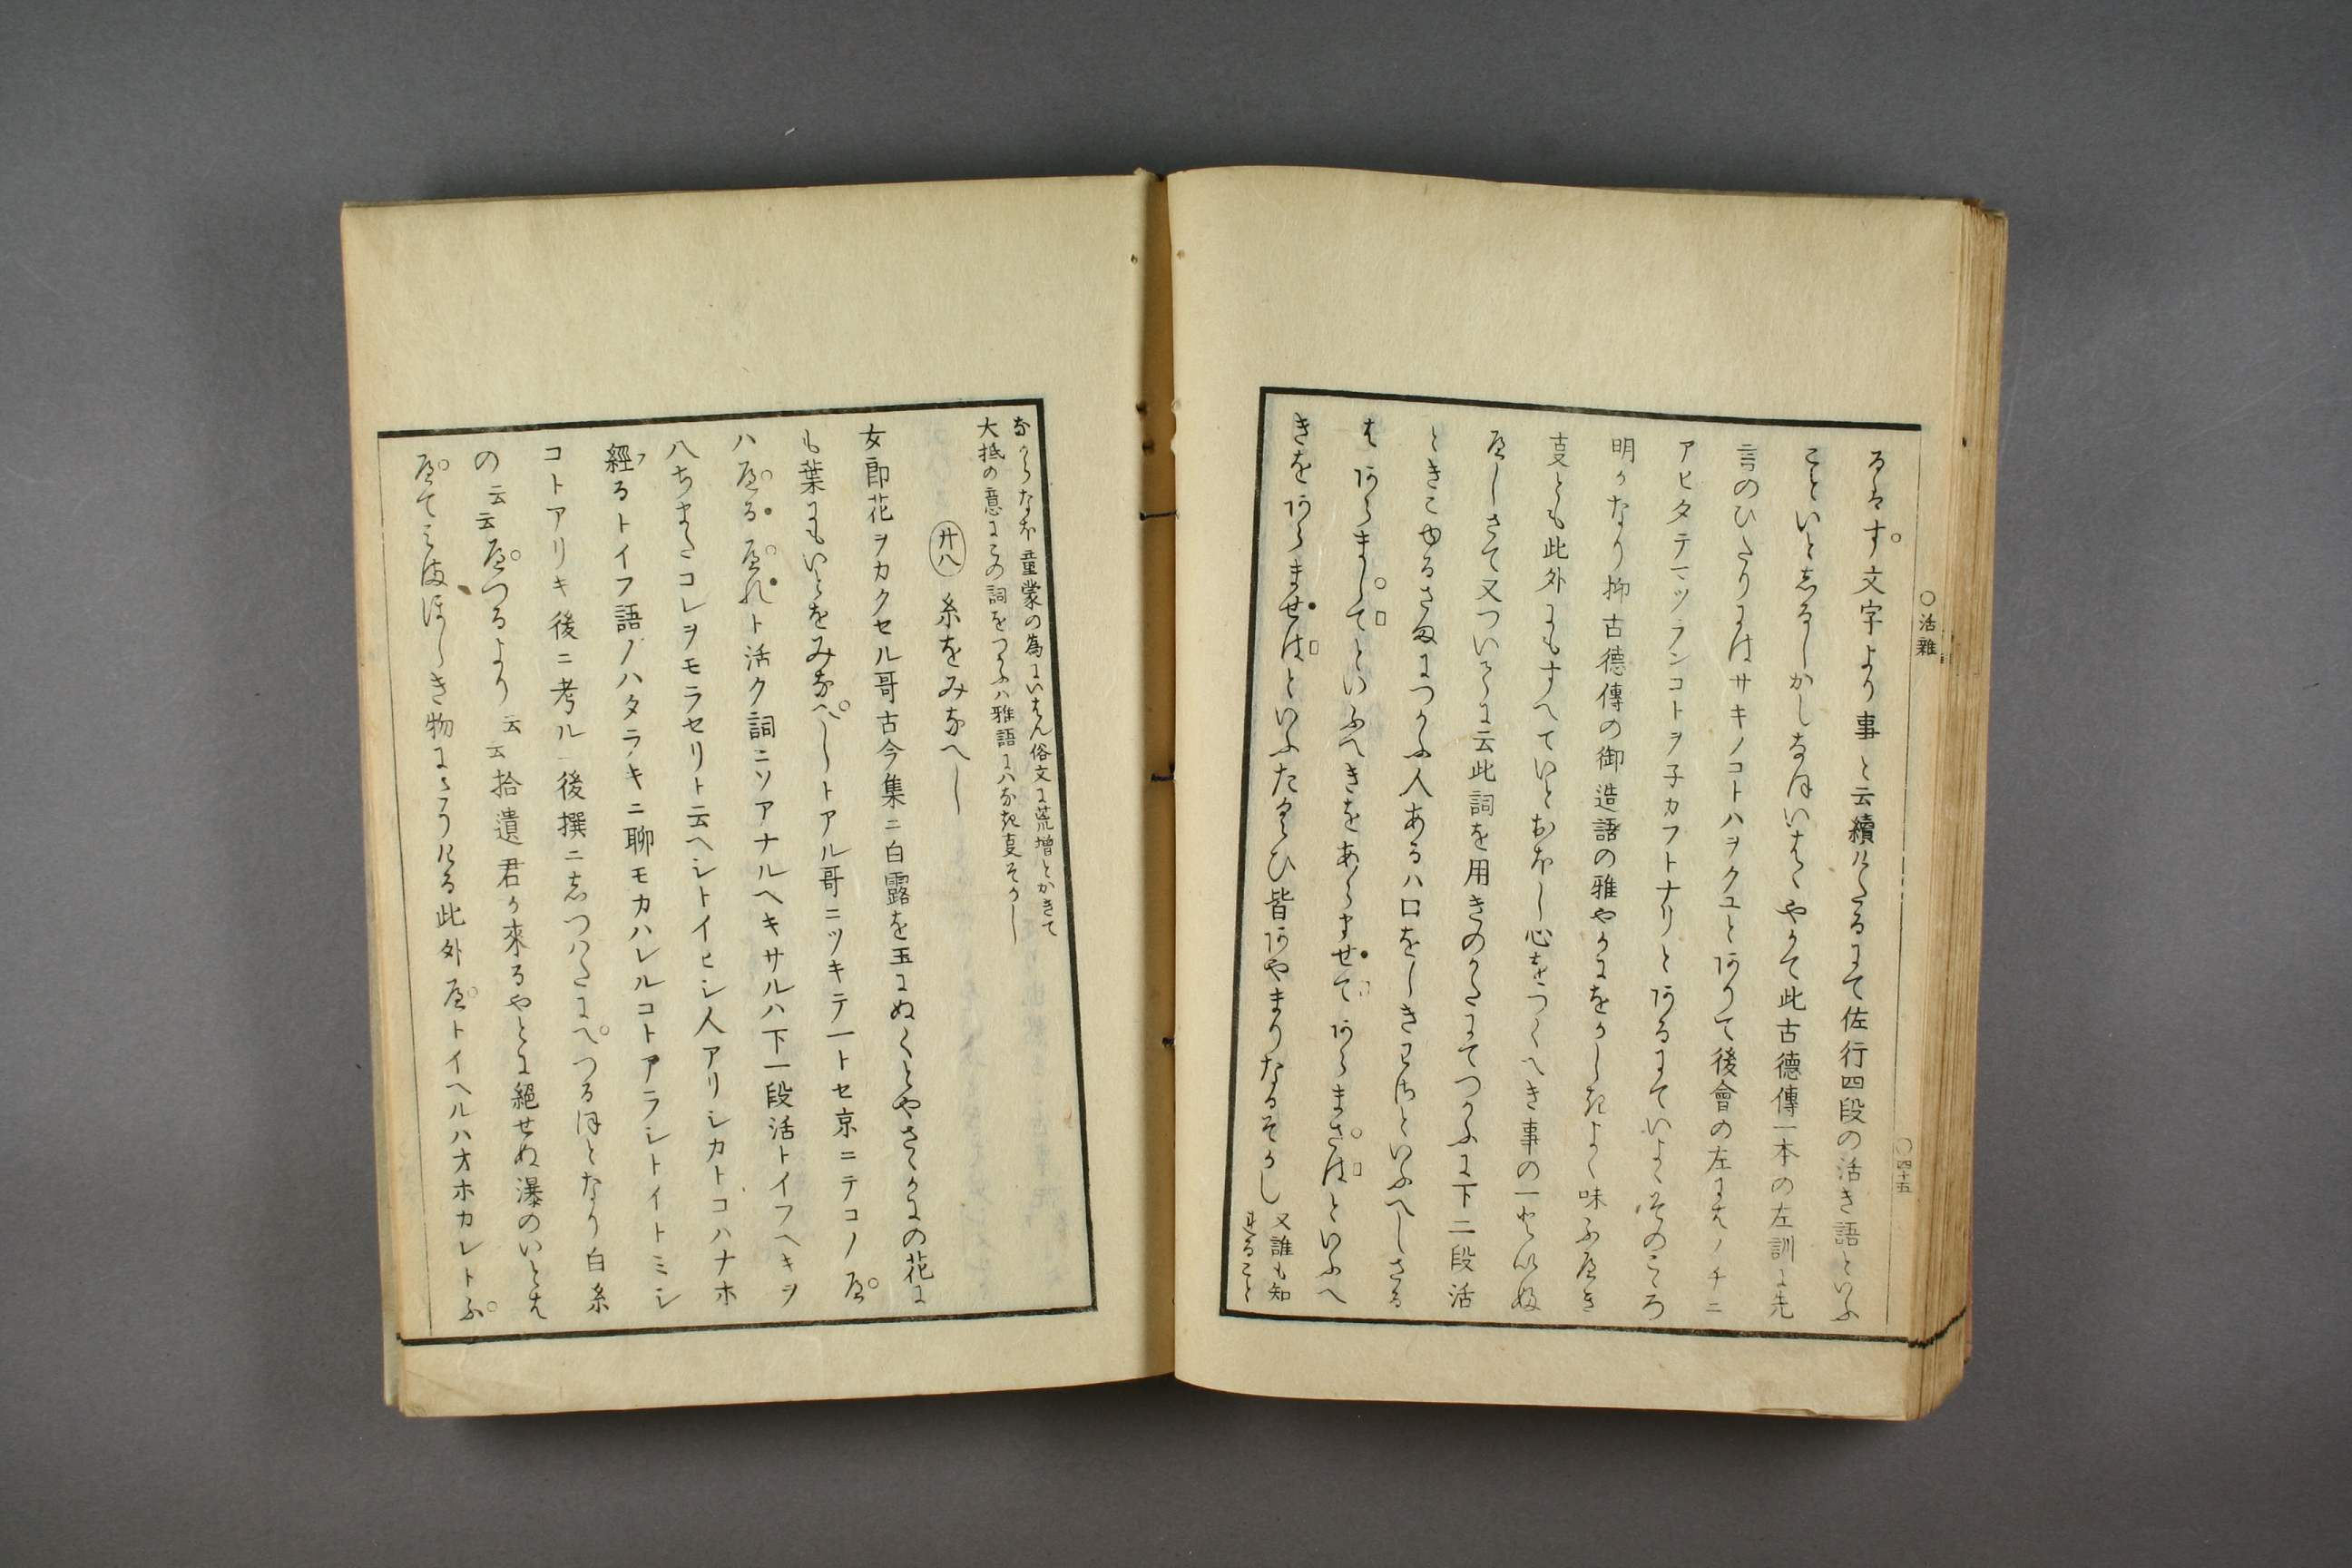 ○活雜
○四十五
るはす文字より事と云續けたるにて佐行四段の活き語といふ
こといと志るしかしなほいはゝやかて此古德傳一本の左訓に先
言のひたりにはサキノコトハヲクユとありて後會の左にはノチニ
アヒタテマツランコトヲ子カフトナリとあるにていよゝそのこころ
明かなり抑古德傳の御造語の雅やかにをかしきよく味ふへき
支とも此外にもすへていとおほし心をつくへき事の一也
へしさて又ついてに云此詞を用きのかたにてつかふに下二段活
ときこゆるさまにつかふ人あるハ口をしきわさといふへしさる
はあらましてといふへきをあらませてあらまさはといふへ
きをあらませはといふたくひ皆あやまりなるそかし
又誰も知
なからなほ童蒙の為にいはん俗文に荒增とかきて
大抵の意にこの詞をつかふハ雅語にハなき支そかし
廿八 糸をみなへし
女郎花ヲカクセル哥古今集ニ白露を玉にぬくとやさゝかにの花に
も葉にもいとをみなへしトアル哥ニツキテ一トセ京ニテコノへ
ハへるへれト活ク詞ニソアナルヘキサルハ下一段活トイフヘキヲ
八ちまたコレヲモラセリト云ヘシトイヒシ人アリシカトコハナホ
經フるトイフ語ノハタラキニ聊モカハレルコトアラシトイトミシ
コトアリキ後ニ考ル後撰ニ志つはたにへつるほとなり白糸
の云云へつるより云云拾遺君か來るやとに絕せぬ瀑のいとは
へてみまほしき物にさりける此外へトイヘルハオホカレトふ